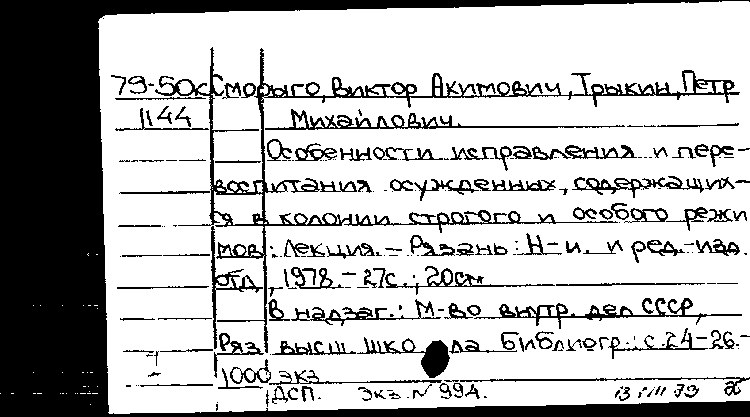 79-50к Сморыго, Виктор Акимович, Трыкин, Петр
1144 Михайлович.
Особенности исправления и пере-
воспитания осужденных, содержащих-
ся в колонии строгого и особого режи
мов: Лекция. - Рязань: Н-и. и ред.-изд.
отд, 1978. - 27с.; 20см
В надзаг.: М-во внутр. дел СССР,
Ряз высш. школа. Библиогр.: с.24-26.-
1000 экз
ДСП. Экз. N 994.